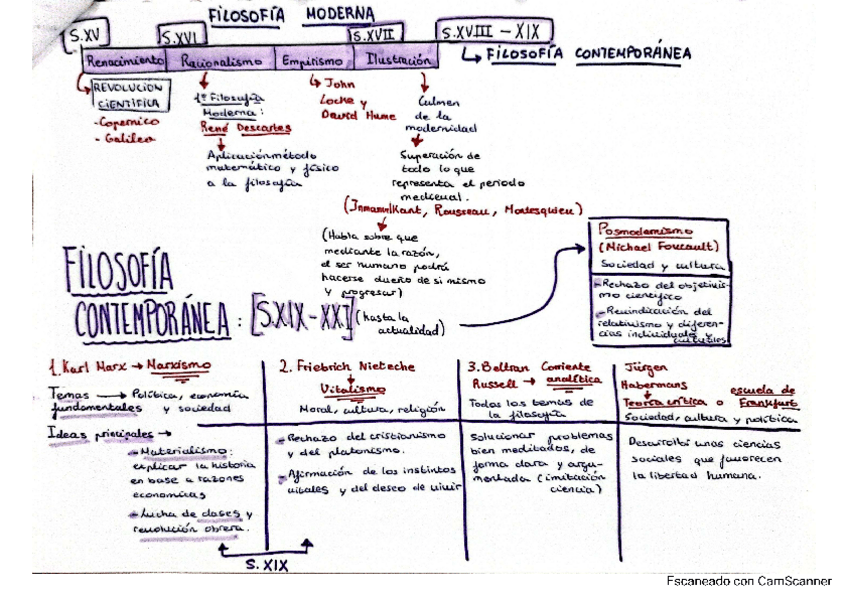 FILOSOFÍA MODERNA
S.XV
S.XVI
S.XVII
S.XVIII - XIX
FILOSOFÍA CONTEMPORÁNEA
Renacimiento
Racionalismo
Empirismo
Ilustración
REVOLUCIÓN
CIENTÍFICA
-Copernico
- Galileo
1ª Filosofía
Moderna:
René Descartes
Aplicación método
matemático y físico
a la filosofía
John
Locke y
David Hume
Culmen
de la
modernidad
Superación de
todo lo que
representa el periodo
medieval.
(Inmanuel Kant, Rousseau, Montesquieu)
(Habla sobre que
mediante la razón,
el ser humano podrá
hacerse dueño de si mismo
y progresar)
Posmodernismo
(Michael Foucault)
Sociedad y cultura
- Rechazo del objetivis-
mo científico
- Reivindicación del
relativismo y diferen-
cias individuales y
culturales
FILOSOFÍA
CONTEMPORÁNEA: [S.XIX-XXI] (hasta la
actualidad)
1. Karl Marx → Marxismo
Temas → Política, economía
fundamentales y sociedad
Ideas principales →
- Materialismo:
explicar la historia
en base a razones
economicas
- Lucha de clases y
revolución obrera.
2. Friebrich Nieteche
Vitalismo
Moral, cultura, religión
- Rechazo del cristionismo
y del platonismo.
- Afirmación de los instintos
vitales y del deseo de vivir
S. XIX
3. Beltran Corriente
Russell → analítica
Todos los temas de
la filosofía
Solucionar problemas
bien meditados, de
forma clara y argu-
mentada (imitación
ciencia)
Jürgen
Habermans
escuela de
Teoría crítica o Frankfurt
Sociedad, cultura y política
Desarrollar unas ciencias
sociales que favorecen
la libertad humana.
Escaneado con CamScanner